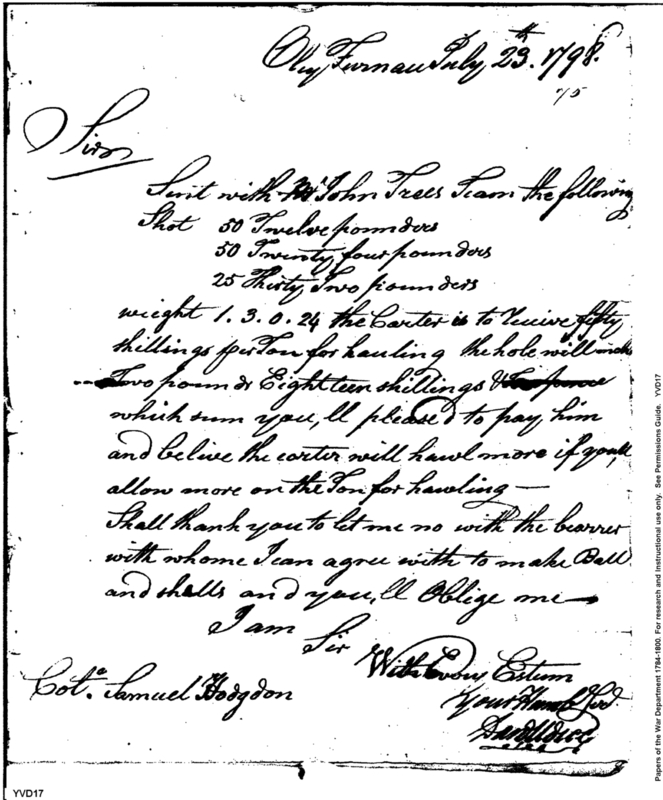 Oley Furnau July 23.th 1798.
75
Sir
Sent with John Trees Team the following
Shot 50 Twelve pounders
50 Twenty four pounders
25 Thirty Two pounders
weight 1.3.0.24 the Carter is to receive fifty
shillings per Ton for hauling the hole will make
Two pounds Eighteen shillings &
which sum you,ll pleased to pay him
and belive the carter will hawl more if you,ll
allow more on the Ton for hawling —
Shall thank you to let me no with the bearrer
with whome I can agree with to make Ball
and shells and you,ll Oblige me —
I am
Sir
With Every Esteem
Your Humb
Samuel Hodgdon
Papers of the War Department 1784-1800. For research and instructional use only. See Permissions Guide. YVD17
YVD17